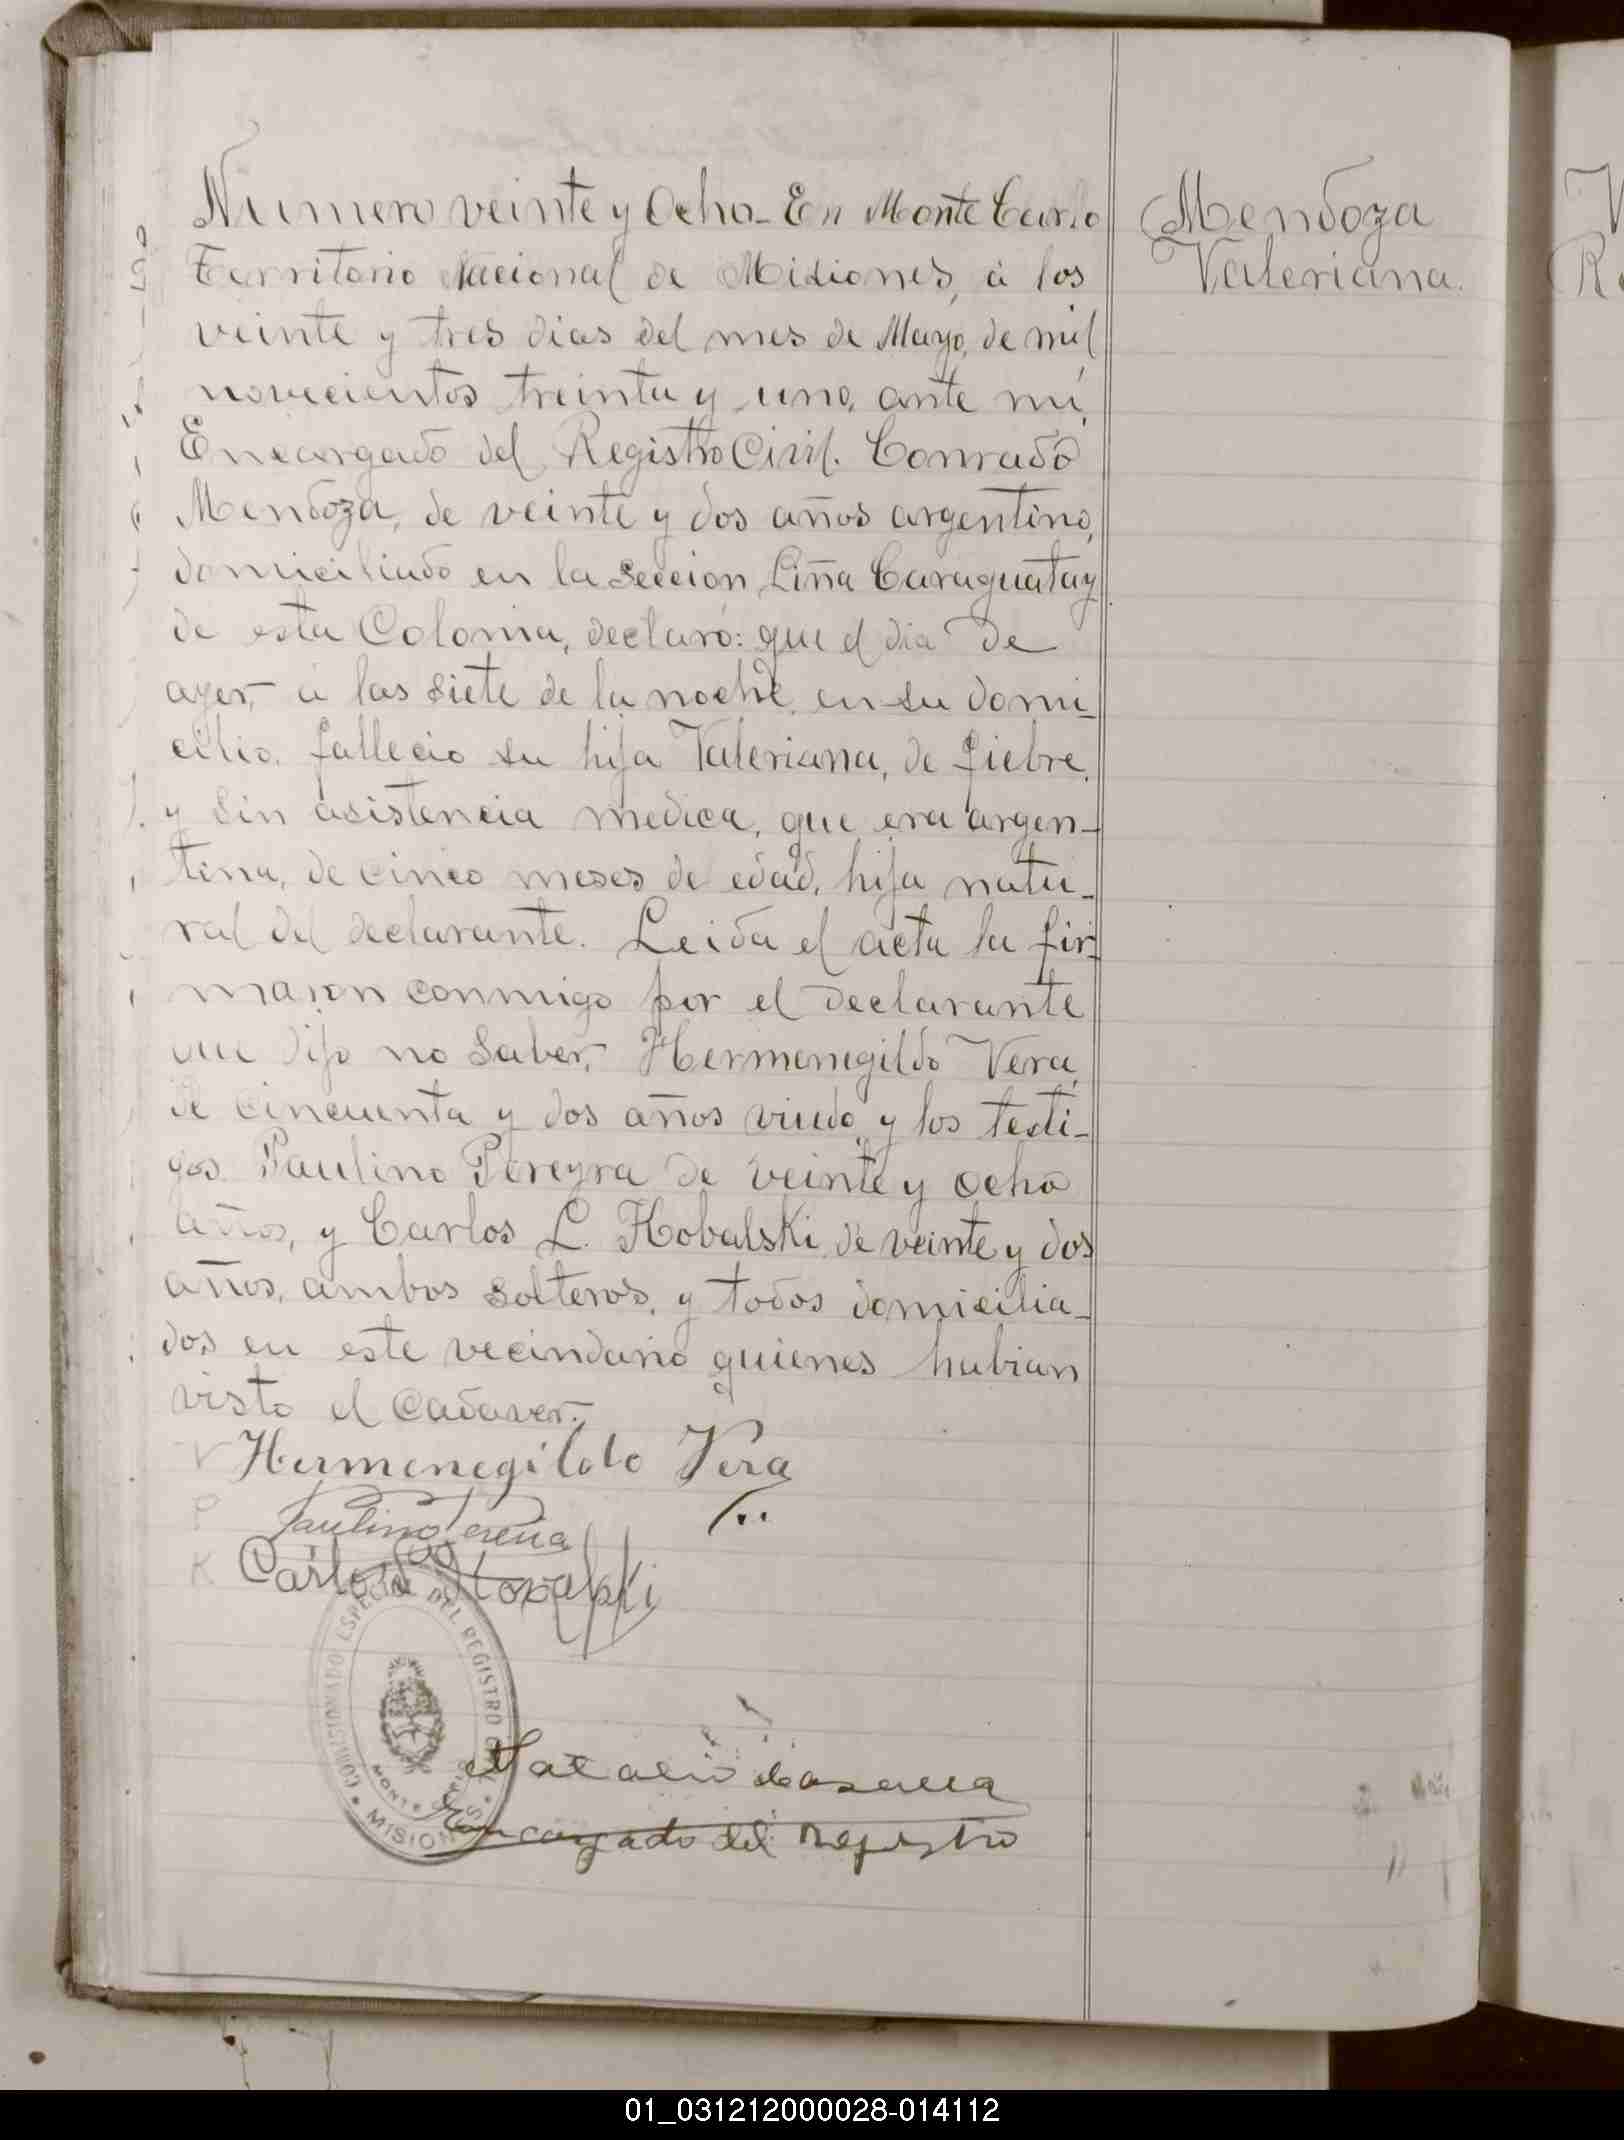 Numero veinte y Ocho_ En Monte Carlo
Territorio Nacional de Misiones, á los
veinte y tres dias del mes de Mayo, de mil
novecientos treinta y uno, ante mi,
Encargado del Registro Civil. Conrado
Mendoza, de veinte y dos años argentino,
domiciliado en la Seccion Liña Caraguatay
de esta Colonia, declaró: que el dia de
ayer, a las siete de la noche, en su domi_
cilio, fallecio su hija Valeriana, de fiebre,
y sin asistencia medica, que era argen_
tina, de cinco meses de edad, hija natu_
ral del declarante. Leida el acta la fir_
maron conmigo por el declarante
que dijo no saber, Hermenegildo Vera,
de cincuenta y dos años viudo, y los testi_
gos Paulino Pereyra de veinte y ocho
años, y Carlos L. Kobalski, de veinte y dos
años, ambos solteros, y todos domicilia_
dos en este vecindario quienes habian
visto el cadaver.
Hermenegildo Vera
Paulino
Carlos
COMISIONADO ESPECIAL DEL REGISTRO CIVIL
MONTE CARLO
MISIONES
Encargado del registro
Mendoza
Valeriana.
01_031212000028-014112